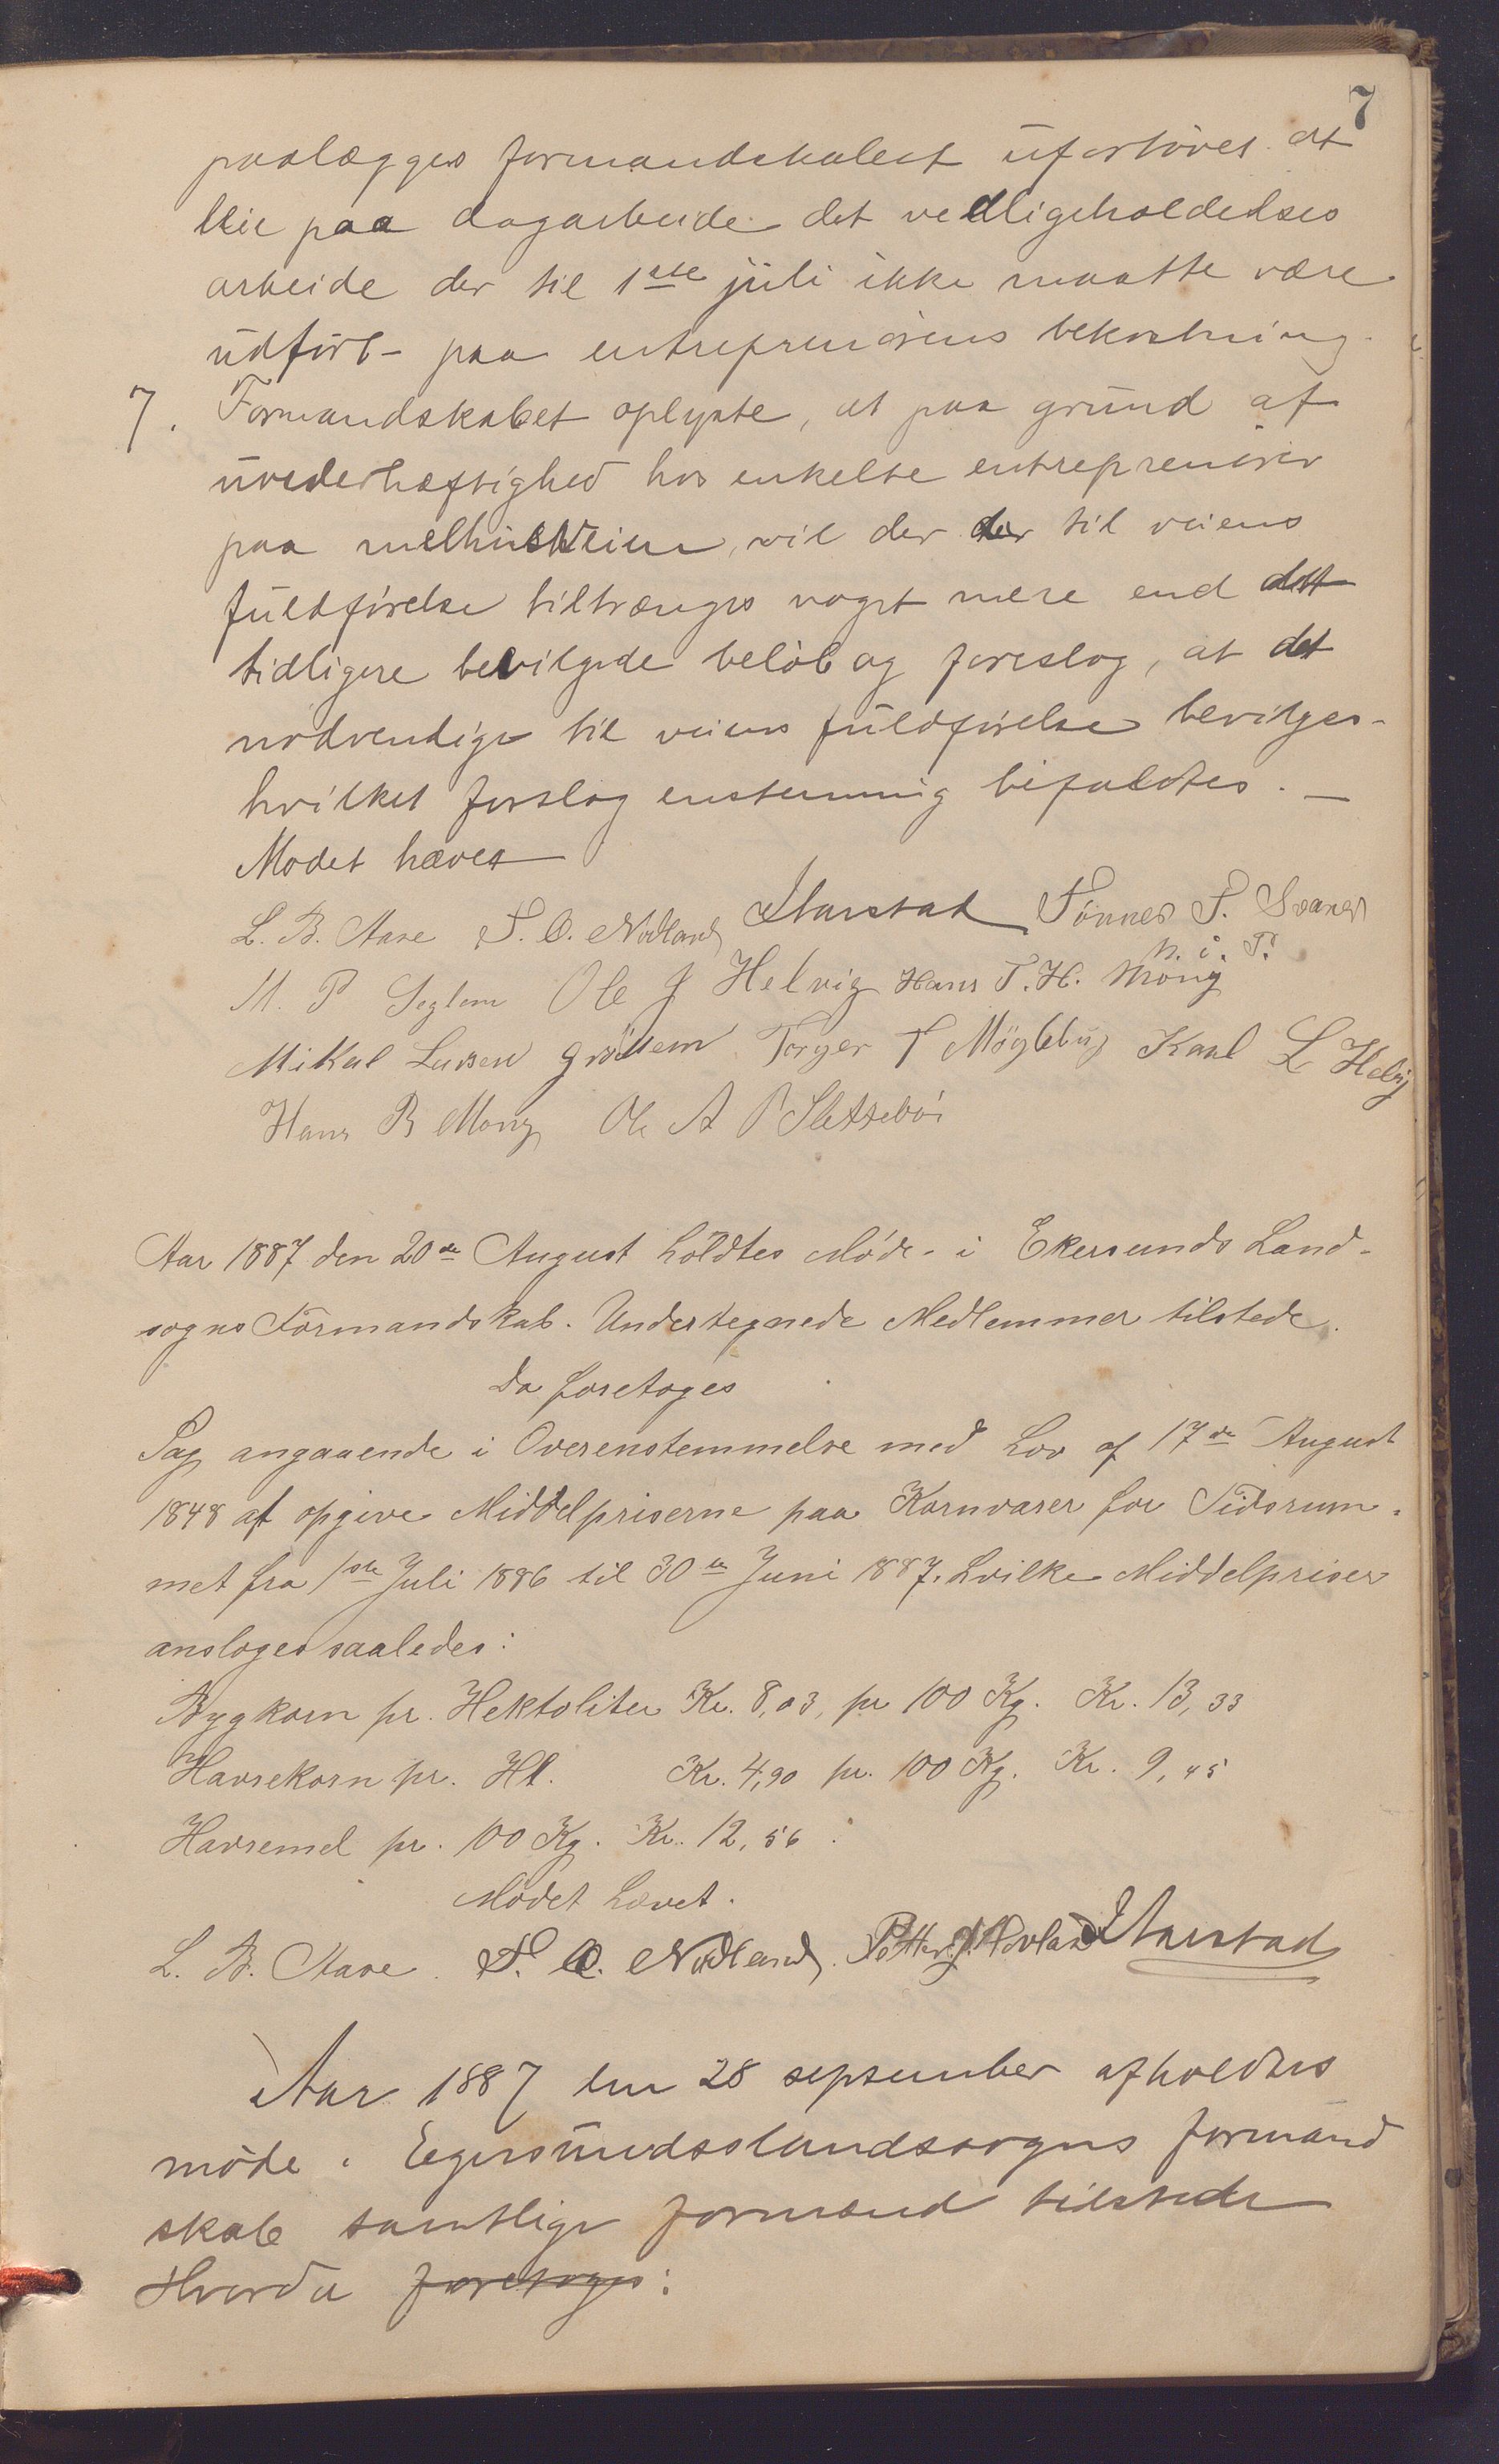 7
paalægges formandskabet ufortövet at
leie paa dagarbeide det vedligeholdelses
arbeide der til 1ste juli ikke maatte være
udfört - paa entreprenörens bekostning.
7. Formandskabet oplyste, at paa grund af
uvederhæftighed hos enkelte entreprenörer
paa melhusveien, vil der der til veiens
fuldförelse tiltrænges noget mere end dett
tidligere bevilgede belöb og foreslog, at det
nödvendige til veiens fuldförelse bevilges -
hvilket forslog enstemmig bifaldtes. —
Mödet hævet
L. B. Aase T. O. Nodland Starstad Tönnes T. Svanes
M. P Seglem Ole J Helvig Hans T. H. Mong n. i. T.
Mikal Larsen Grödem Torger T Möglebug Karl L Helvig
Hans B Mong Ole A P Slettebö
Aar 1887 den 20de August holdtes Möde i Ekersunds Land-
sogns Formandskab. Undertegnede Medlemmer tilstede.
Da foretoges
Sag angaaende i Overenstemmelse med Lov af 17de August
1848 at opgive Middelpriserne paa Kornvarer for Tidsrum-
met fra 1ste Juli 1886 til 30te Juni 1887. hvilke Middelpriser
ansloges saaledes:
Bygkorn pr. Hektoliter Kr. 8,03, pr 100 Kg. Kr. 13,33
Havrekorn pr. Hl. Kr. 4,90 pr. 100 Kg. Kr. 9,45
Havremel pr. 100 Kg. Kr. 12,56.
Mödet hævet.
L. B. Aase. T. O. Nodland. Petter J. Hovland Starstad
Aar 1887 den 28 september afholdtes
möde i Egersundsslandsogns formand
skab samtlige formænd tilstede
Hvorda foretoges: